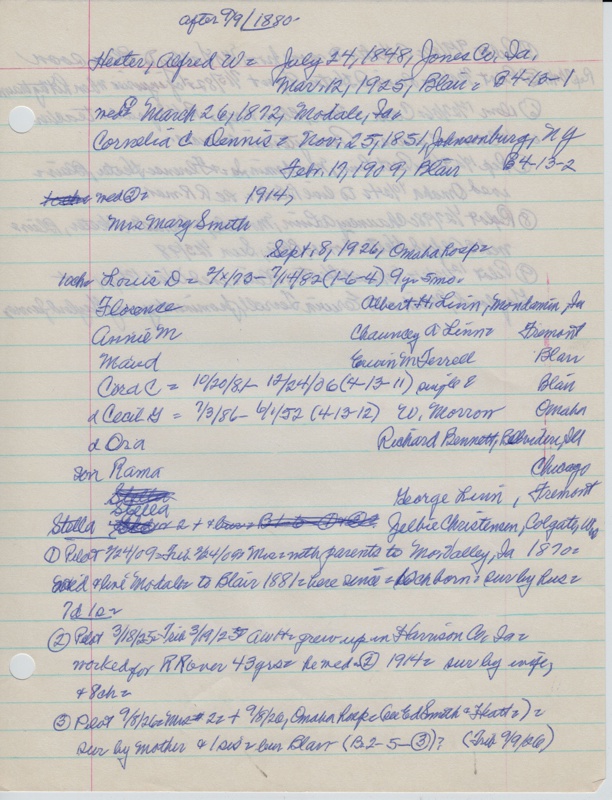 after 9/9/1880
Hester, Alfred W = July 24, 1848, Jones Co, Ia.
Mar. 12, 1925, Blair = B4-13-1
med ① March 26, 1872, Modale, Ia.
Cornelia C. Dennis = Nov. 25, 1851, Johnsonburg, NY
Febr. 17, 1909, Blair B4-13-2
med ② = 1914,
Mrs Mary Smith
Sept. 8, 1926, Omaha Hosp =
10ch = Louis D = 2/x/73 - 7/14/82 (1-6-4) 9 yr 5 mo.
Florence Albert H. Linn, Mondamin, Ia
Annie M Chauncey A. Linn = Fremont
Maud Erwin M Ferrell Blair
Cora C = 10/20/81 - 12/24/06 (4-13-11) single Blair
d Cecil G = 7/3/86 - 6/1/52 (4-13-12) W. Morrow Omaha
d Ora Richard Bennett, Belvidere, Ill
son Rama Chicago
Stella George Linn, Fremont
Stella Christensen, Colgate,
① Pilot 2/24/09 = Trib 2/24/09 = Mrs = with parents to Mo Valley, Ia 1870 =
med & live Modale = to Blair 1881 = here since = 10ch born = sur by hus =
7d 1s =
② Pilot 3/18/25 = Trib 3/19/25 = AWH = grew up in Harrison Co, Ia =
worked for RR over 43 yrs = he med ② 1914 = sur by wife,
+ 8ch =
③ Pilot 9/8/26 = Mrs = 9/8/26, Omaha Hosp = Ed Smith =
sur by mother & 1 sis = bur Blair (B2-5-③)? (Trib 9/9/06)